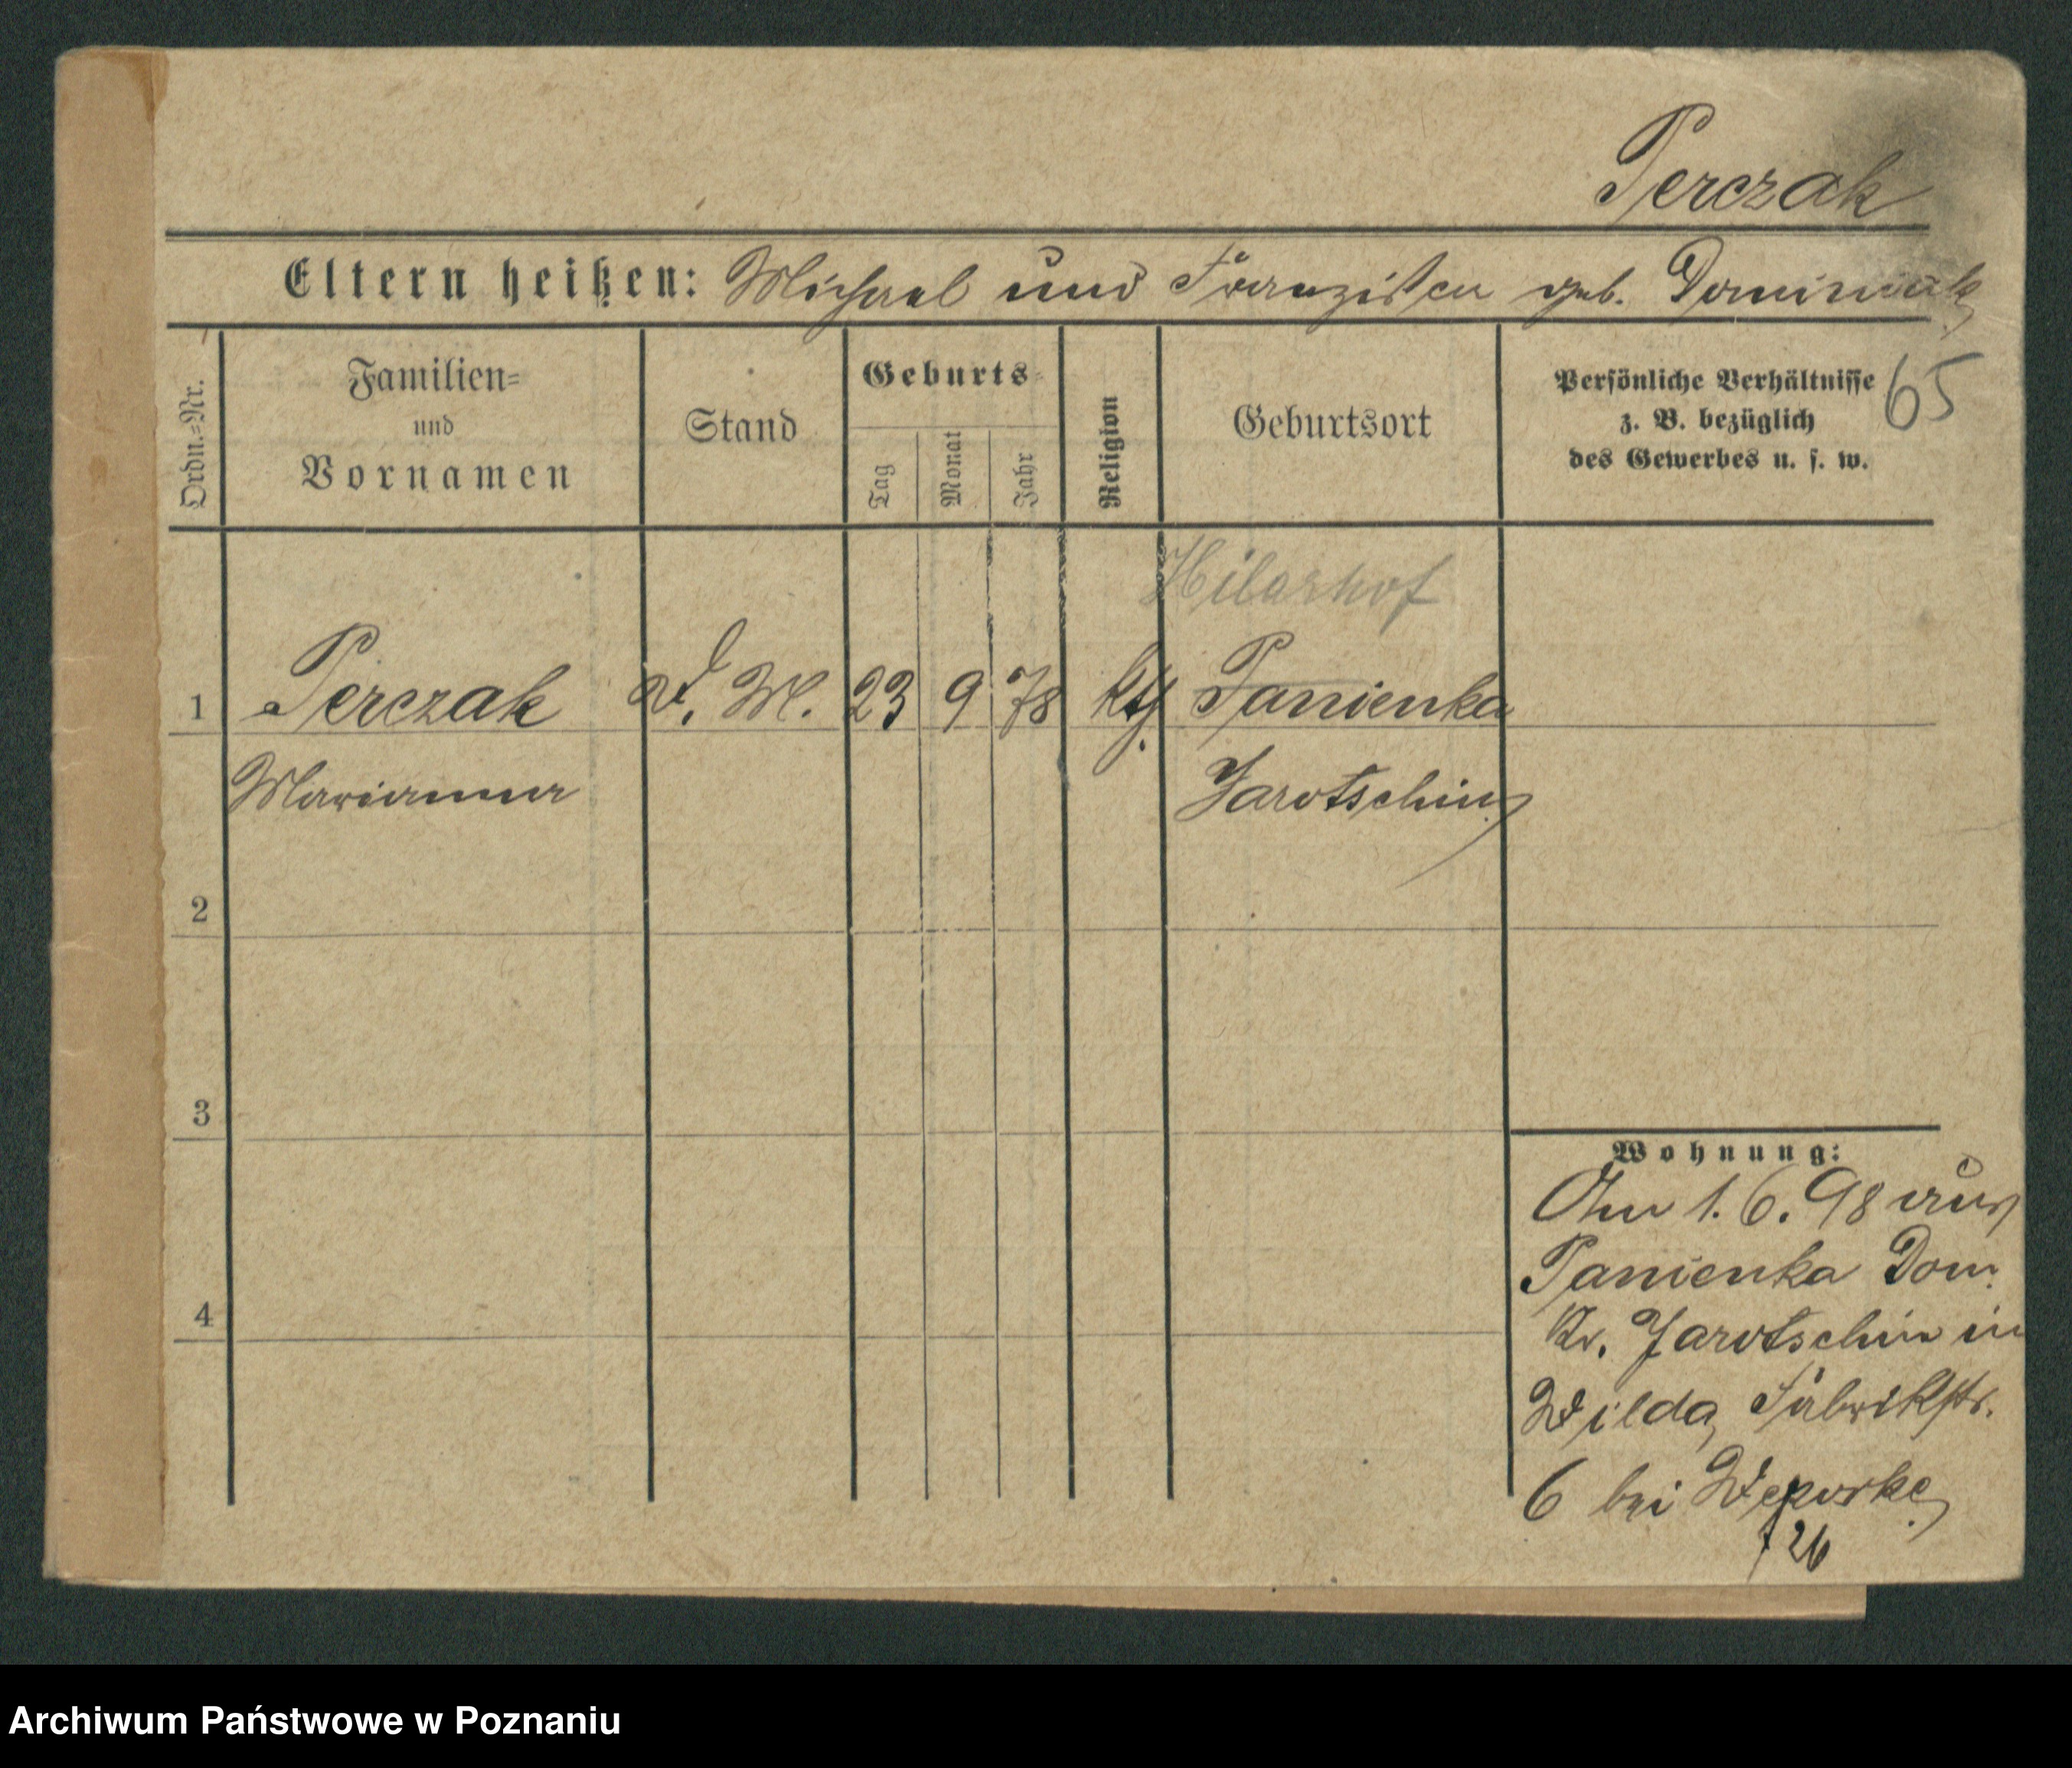 Perczak
Eltern heißen: Michael und Franziska geb. Dominiak
65
Ordn.-Nr.
Familien-
und
Vornamen
Stand
Geburts-
Tag
Monat
Jahr
Religion
Geburtsort
Persönliche Verhältnisse
z. B. bezüglich
des Gewerbes u. s. w.
Hilarhof
1 Perczak d. M. 23 9 78 kth. Panienka
Marianna Jarotschin
2
3
4
Wohnung:
Am 1. 6. 98 aus
Panienka Dom.
Kr. Jarotschin in
Wilda, Fabrikstr.
6 bei
26
Archiwum Państwowe w Poznaniu